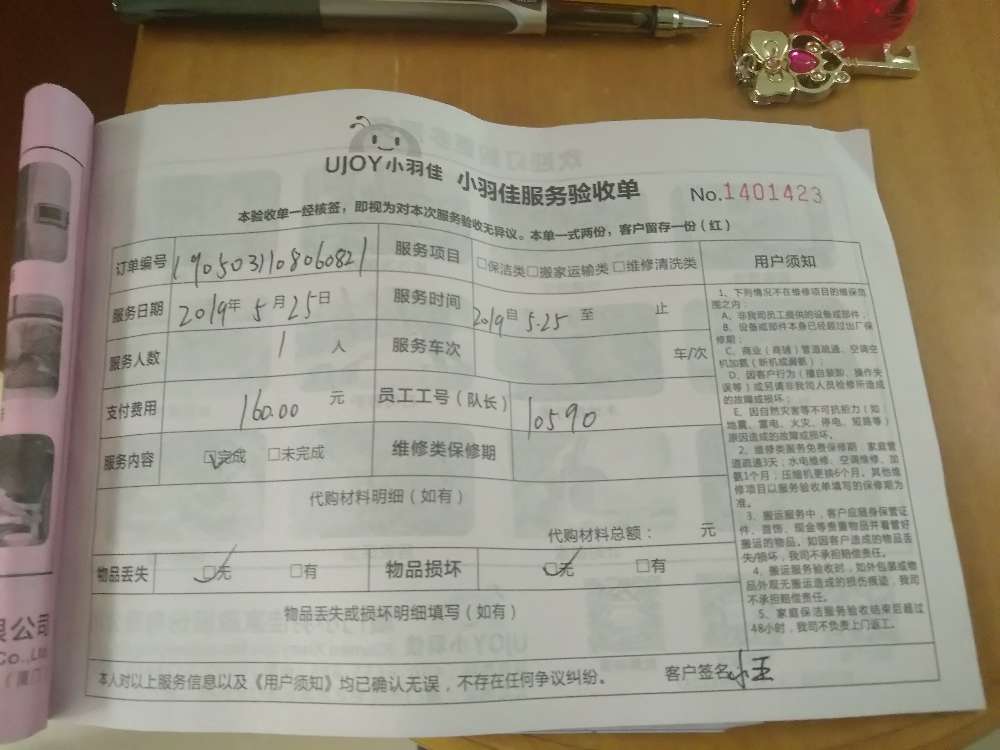 UJOY小羽佳 小羽佳服务验收单 No.1401423
本验收单一经核签，即视为对本次服务验收无异议。本单一式两份，客户留存一份（红）
订单编号 1905031108060821 服务项目 □保洁类□搬家运输类 □维修清洗类
服务日期 2019年 5月25日 服务时间 2019自 5.25 至 止
服务人数 1 人 服务车次 车/次
支付费用 160.00 元 员工工号（队长） 10590
服务内容 □完成 □未完成 维修类保修期
代购材料明细（如有）
代购材料总额： 元
物品丢失 □无 □有 物品损坏 □无 □有
物品丢失或损坏明细填写（如有）
本人对以上服务信息以及《用户须知》均已确认无误，不存在任何争议纠纷。 客户签名 小王
用户须知
1、下列情况不在维修项目的维保范
围之内：
A、非我司员工提供的设备或部件；
B、设备或部件本身已经超过出厂保
修期；
C、商业（商铺）管道疏通、空调空
机加氨（新机或漏氨）；
D、因客户行为（擅自装卸、操作失
误等）或另请非我司人员检修所造成
的故障或损坏；
E、因自然灾害等不可抗拒力（如：
地震、雷电、火灾、停电、短路等）
原因造成的故障或损坏。
2、维修类服务免费保修期：家庭管
道疏通3天；水电维修、空调维修、加
氨1个月；压缩机更换6个月。其他维
修项目以服务验收单填写的保修期为
准。
3、搬运服务中，客户应随身保管证
件、首饰、现金等贵重物品并看管好
搬运的物品。如因客户造成的物品丢
失/损坏，我司不承担赔偿责任。
4、搬运服务验收时，如外包装或物
品外观无搬运造成的损伤痕迹，我司
不承担赔偿责任。
5、家庭保洁服务验收结束后超过
48小时，我司不负责上门返工。
限公司
Co.,Ltd
（厦门